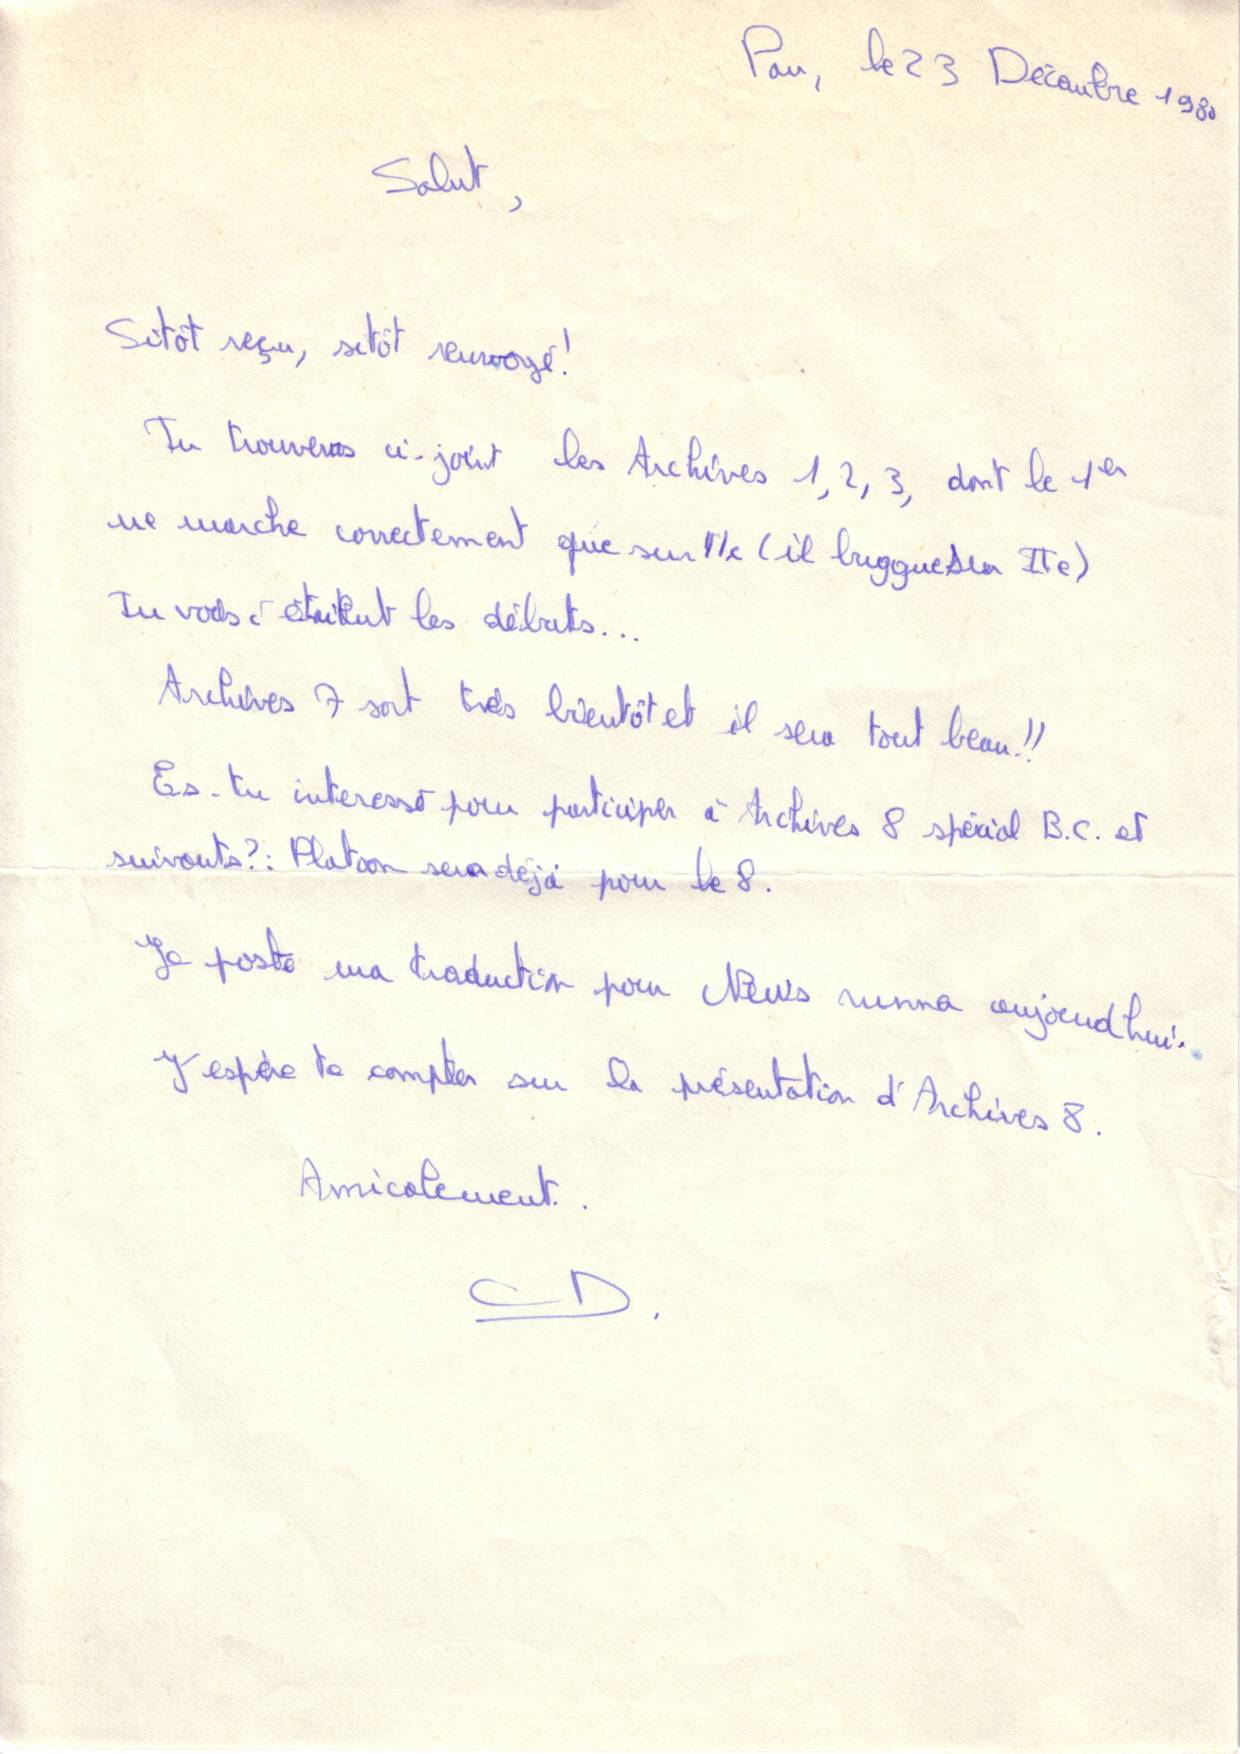 Pau, le 23 Décembre 198
Salut,
Sitôt reçu, sitôt renvoyé!
Tu trouveras ci-joint les Archives 1, 2, 3, dont le 1er
ne marche correctement que sur IIc (il buggue sur IIe)
Tu vois c'était les débuts...
Archives 7 sort très bientôt et il sera tout beau!!
Es-tu interessé pour participer à Archives 8 spécial B.C. et
suivants?: Platoon sera déjà pour le 8.
Je poste ma traduction pour News runna aujourd'hui.
J'espère te compter sur la présentation d'Archives 8.
Amicalement.
CD.